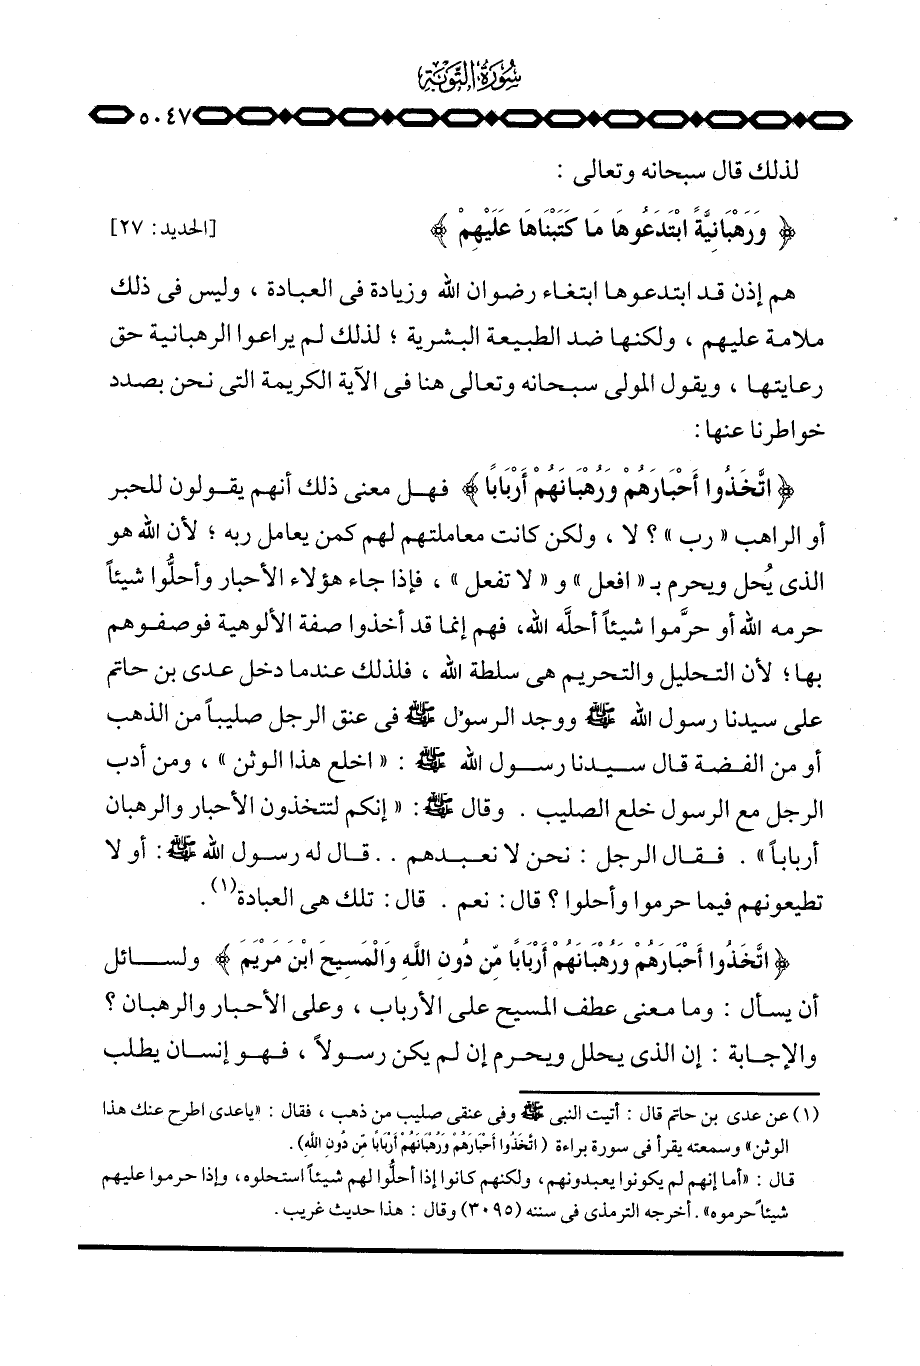 سُورَةُ التَّوْبَةِ
٥٠٤٧
لذلك قال سبحانه وتعالى :
﴿ وَرَهْبَانِيَّةً ابْتَدَعُوهَا مَا كَتَبْنَاهَا عَلَيْهِمْ ﴾ [الحديد: ٢٧]
هم إذن قد ابتدعوها ابتغاء رضوان الله وزيادة فى العبادة ، وليس فى ذلك
ملامة عليهم ، ولكنها ضد الطبيعة البشرية ؛ لذلك لم يراعوا الرهبانية حق
رعايتها ، ويقول المولى سبحانه وتعالى هنا فى الآية الكريمة التى نحن بصدد
خواطرنا عنها:
﴿ اتَّخَذُوا أَحْبَارَهُمْ وَرُهْبَانَهُمْ أَرْبَابًا ﴾ فهل معنى ذلك أنهم يقولون للحبر
أو الراهب « رب » ؟ لا ، ولكن كانت معاملتهم لهم كمن يعامل ربه ؛ لأن الله هو
الذى يُحل ويحرم بـ « افعل » و « لا تفعل » ، فإذا جاء هؤلاء الأحبار وأحلُّوا شيئاً
حرمه الله أو حرَّموا شيئاً أحلَّه الله، فهم إنما قد أخذوا صفة الألوهية فوصفوهم
بها؛ لأن التحليل والتحريم هى سلطة الله ، فلذلك عندما دخل عدى بن حاتم
على سيدنا رسول الله ﷺ ووجد الرسول ﷺ فى عنق الرجل صليباً من الذهب
أو من الفضة قال سيدنا رسول الله ﷺ : « اخلع هذا الوثن » ، ومن أدب
الرجل مع الرسول خلع الصليب . وقال ﷺ: « إنكم لتتخذون الأحبار والرهبان
أرباباً » . فقال الرجل : نحن لا نعبدهم . . قال له رسول الله ﷺ: أو لا
تطيعونهم فيما حرموا وأحلوا ؟ قال: نعم . قال: تلك هى العبادة(١) .
﴿ اتَّخَذُوا أَحْبَارَهُمْ وَرُهْبَانَهُمْ أَرْبَابًا مِّن دُونِ اللَّهِ وَالْمَسِيحَ ابْنَ مَرْيَمَ ﴾ ولسائل
أن يسأل : وما معنى عطف المسيح على الأرباب ، وعلى الأحبار والرهبان ؟
والإجابة : إن الذى يحلل ويحرم إن لم يكن رسولاً ، فهو إنسان يطلب
(١) عن عدى بن حاتم قال : أتيت النبى ﷺ وفى عنقى صليب من ذهب ، فقال : «ياعدى اطرح عنك هذا
الوثن» وسمعته يقرأ فى سورة براءة ﴿ اتَّخَذُوا أَحْبَارَهُمْ وَرُهْبَانَهُمْ أَرْبَابًا مِّن دُونِ اللَّهِ ﴾.
قال : «أما إنهم لم يكونوا يعبدونهم، ولكنهم كانوا إذا أحلُّوا لهم شيئاً استحلوه، وإذا حرموا عليهم
شيئاً حرموه». أخرجه الترمذى فى سننه (٣٠٩٥) وقال : هذا حديث غريب .